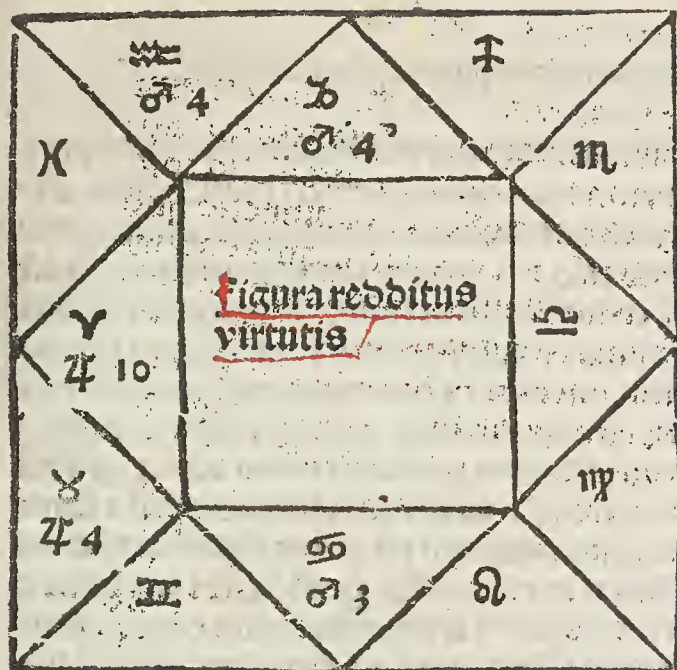 ♒ ♑ ♐
♂ 4 ♂ 4
♓ ♏
Figura redditus
virtutis
♈ ♎
♃ 10
♉ ♍
♃ 4 ♋
♊ ♂ 3 ♌